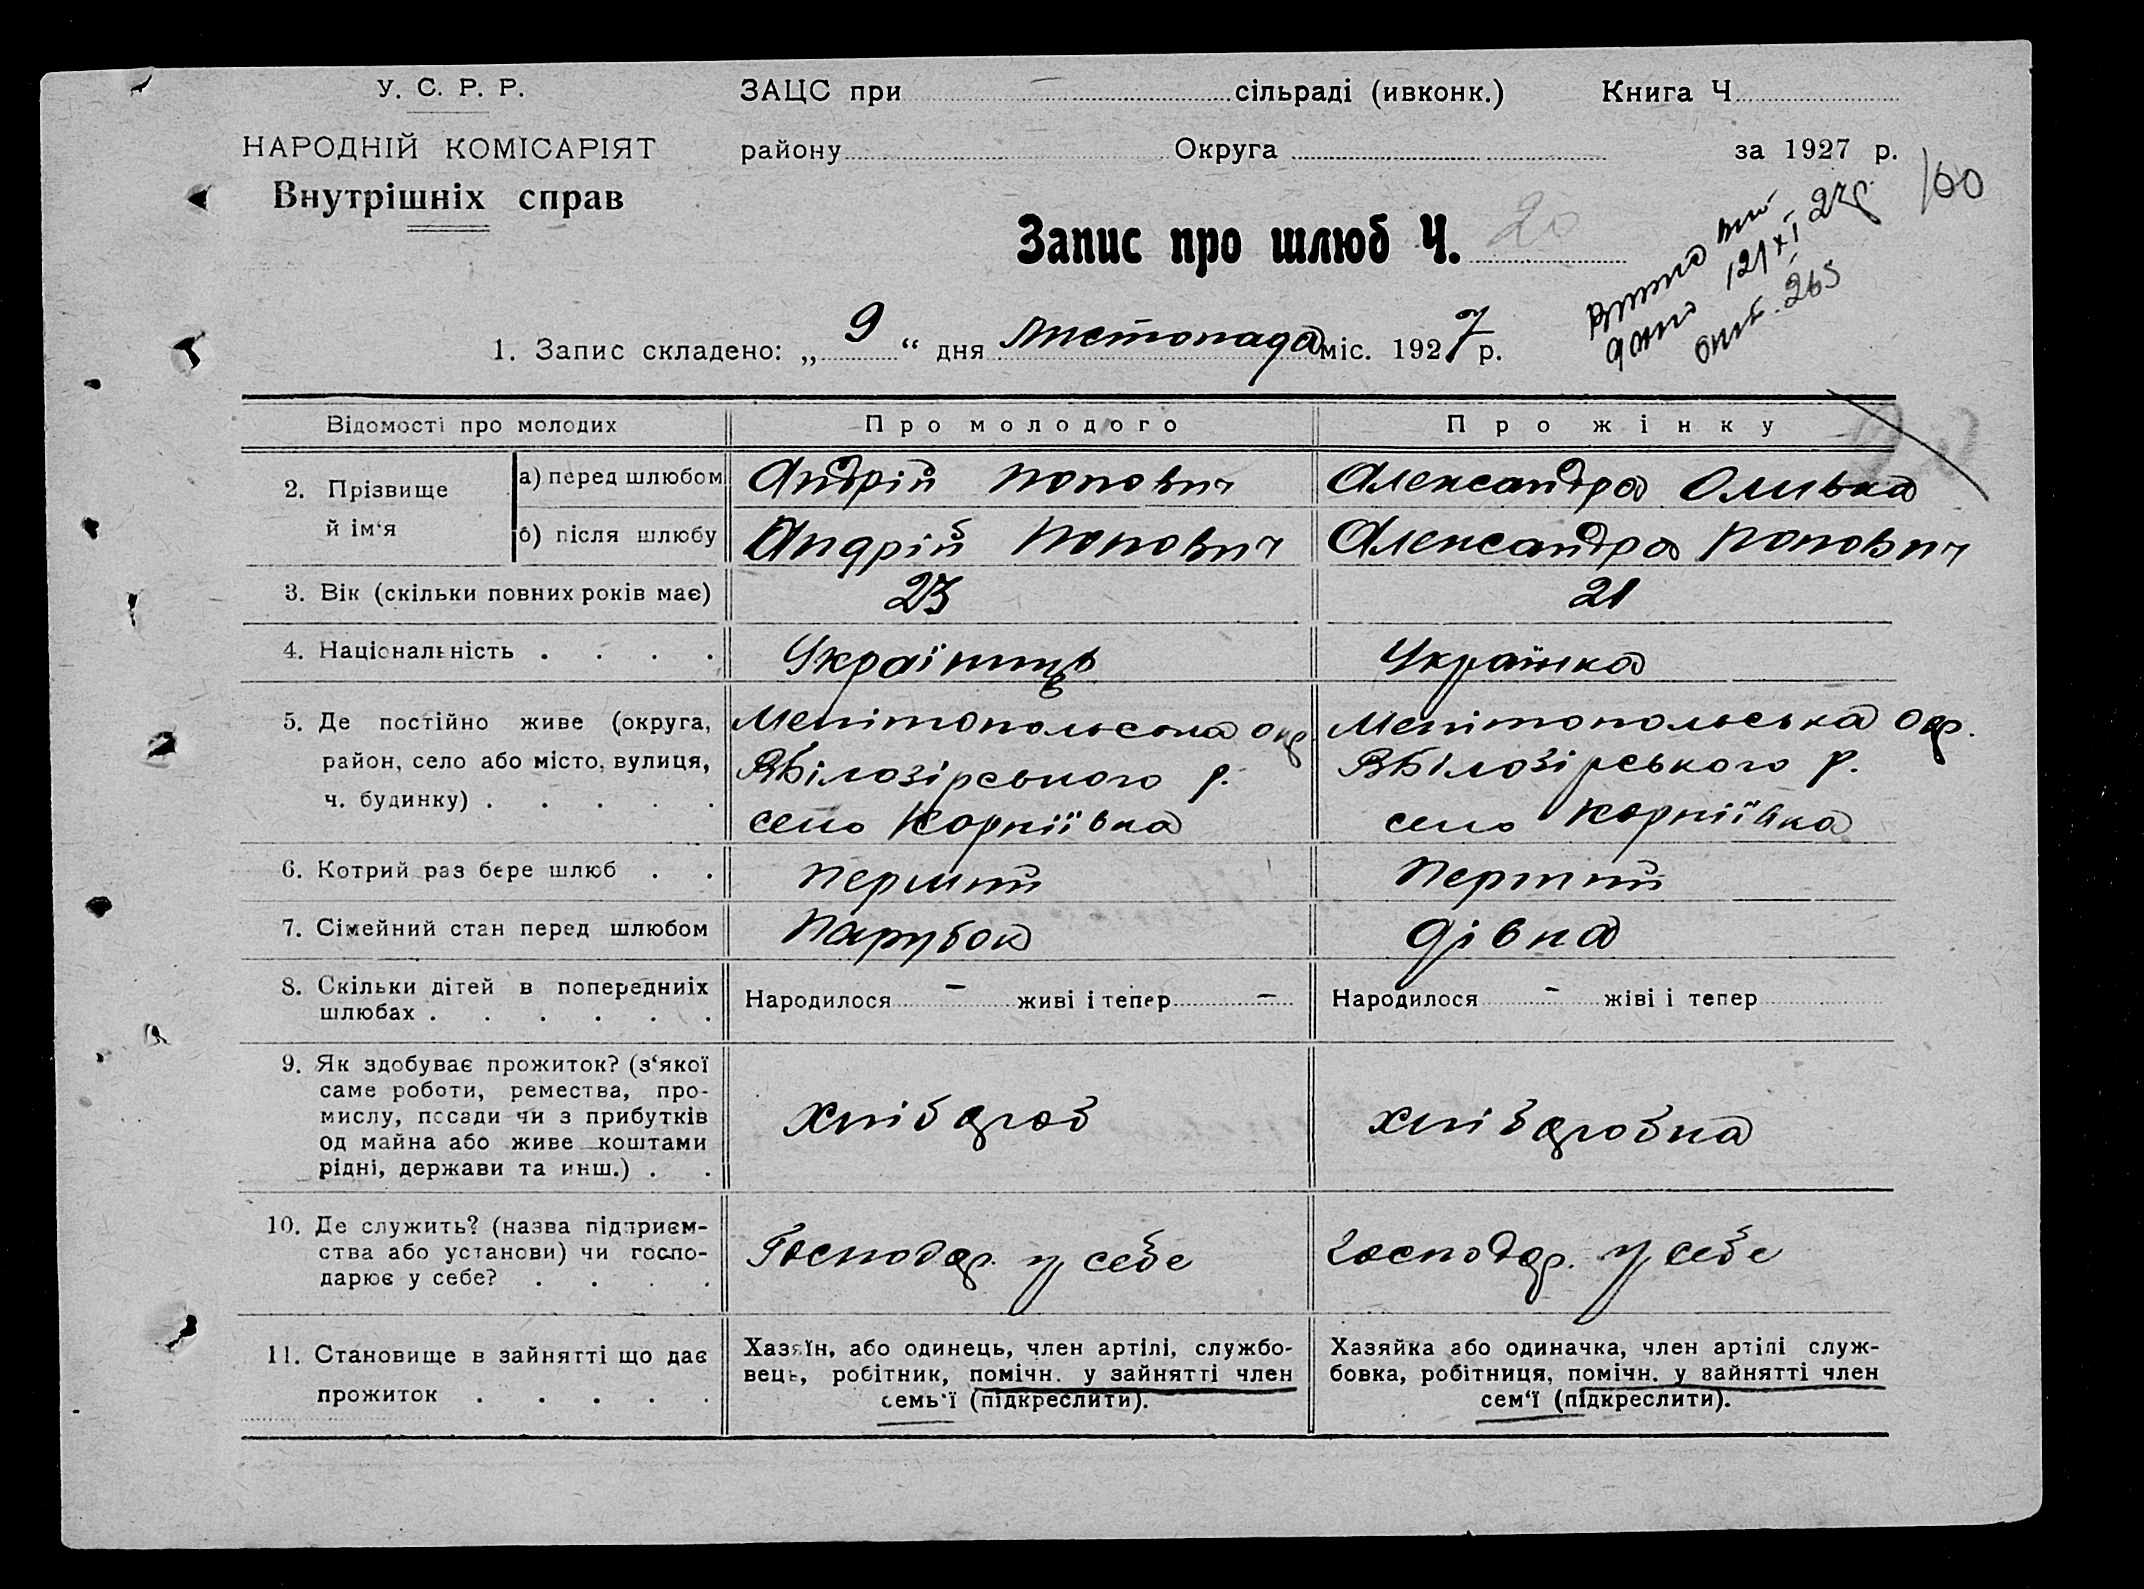 У. С. Р. Р.
НАРОДНІЙ КОМІСАРІЯТ
Внутрішніх справ
ЗАЦС при — сільраді (ивконк.) Книга Ч
району Округа за 1927 р.
160
Запис про шлюб Ч. 20
дано 121 XI 27р.
265
1. Запис складено: „ 9 “ дня листопада міс. 1927 р.
Відомості про молодих
Про молодого
Про жінку
2. Прізвище й ім‘я
а) перед шлюбом
Андрій Попович
Александра Оливка
б) після шлюбу
Андрій Попович
Александра Попович
3. Вік (скільки повних років має)
23
21
4. Національність . . . .
Українець
Українка
5. Де постійно живе (округа,
район, село або місто, вулиця,
ч. будинку) . . . . .
Мелітопольська окр.
ВБілозірського р.
село Корніївка
Мелітопольська окр.
ВБілозірського р.
село Корніївка
6. Котрий раз бере шлюб . .
перший
перший
7. Сімейний стан перед шлюбом
Парубок
дівка
8. Скільки дітей в попередниіх
шлюбах . . . . . .
Народилося – живі і тепер –
Народилося – жіві і тепер
9. Як здобуває прожиток? (з‘якої
саме роботи, ремества, про-
мислу, посади чи з прибутків
од майна або живе коштами
рідні, держави та инш.) . .
хлібороб
хліборобка
10. Де служить? (назва підприєм-
ства або установи) чи госпо-
дарює у себе? . . . .
Господар. у себе
Господар. у себе
11. Становище в зайнятті що дає
прожиток . . . . .
Хазяїн, або одинець, член артілі, службо-
вець, робітник, помічн. у зайнятті член
семь‘ї (підкреслити).
Хазяйка або одиначка, член артілі служ-
бовка, робітниця, помічн. у зайнятті член
сем‘ї (підкреслити).